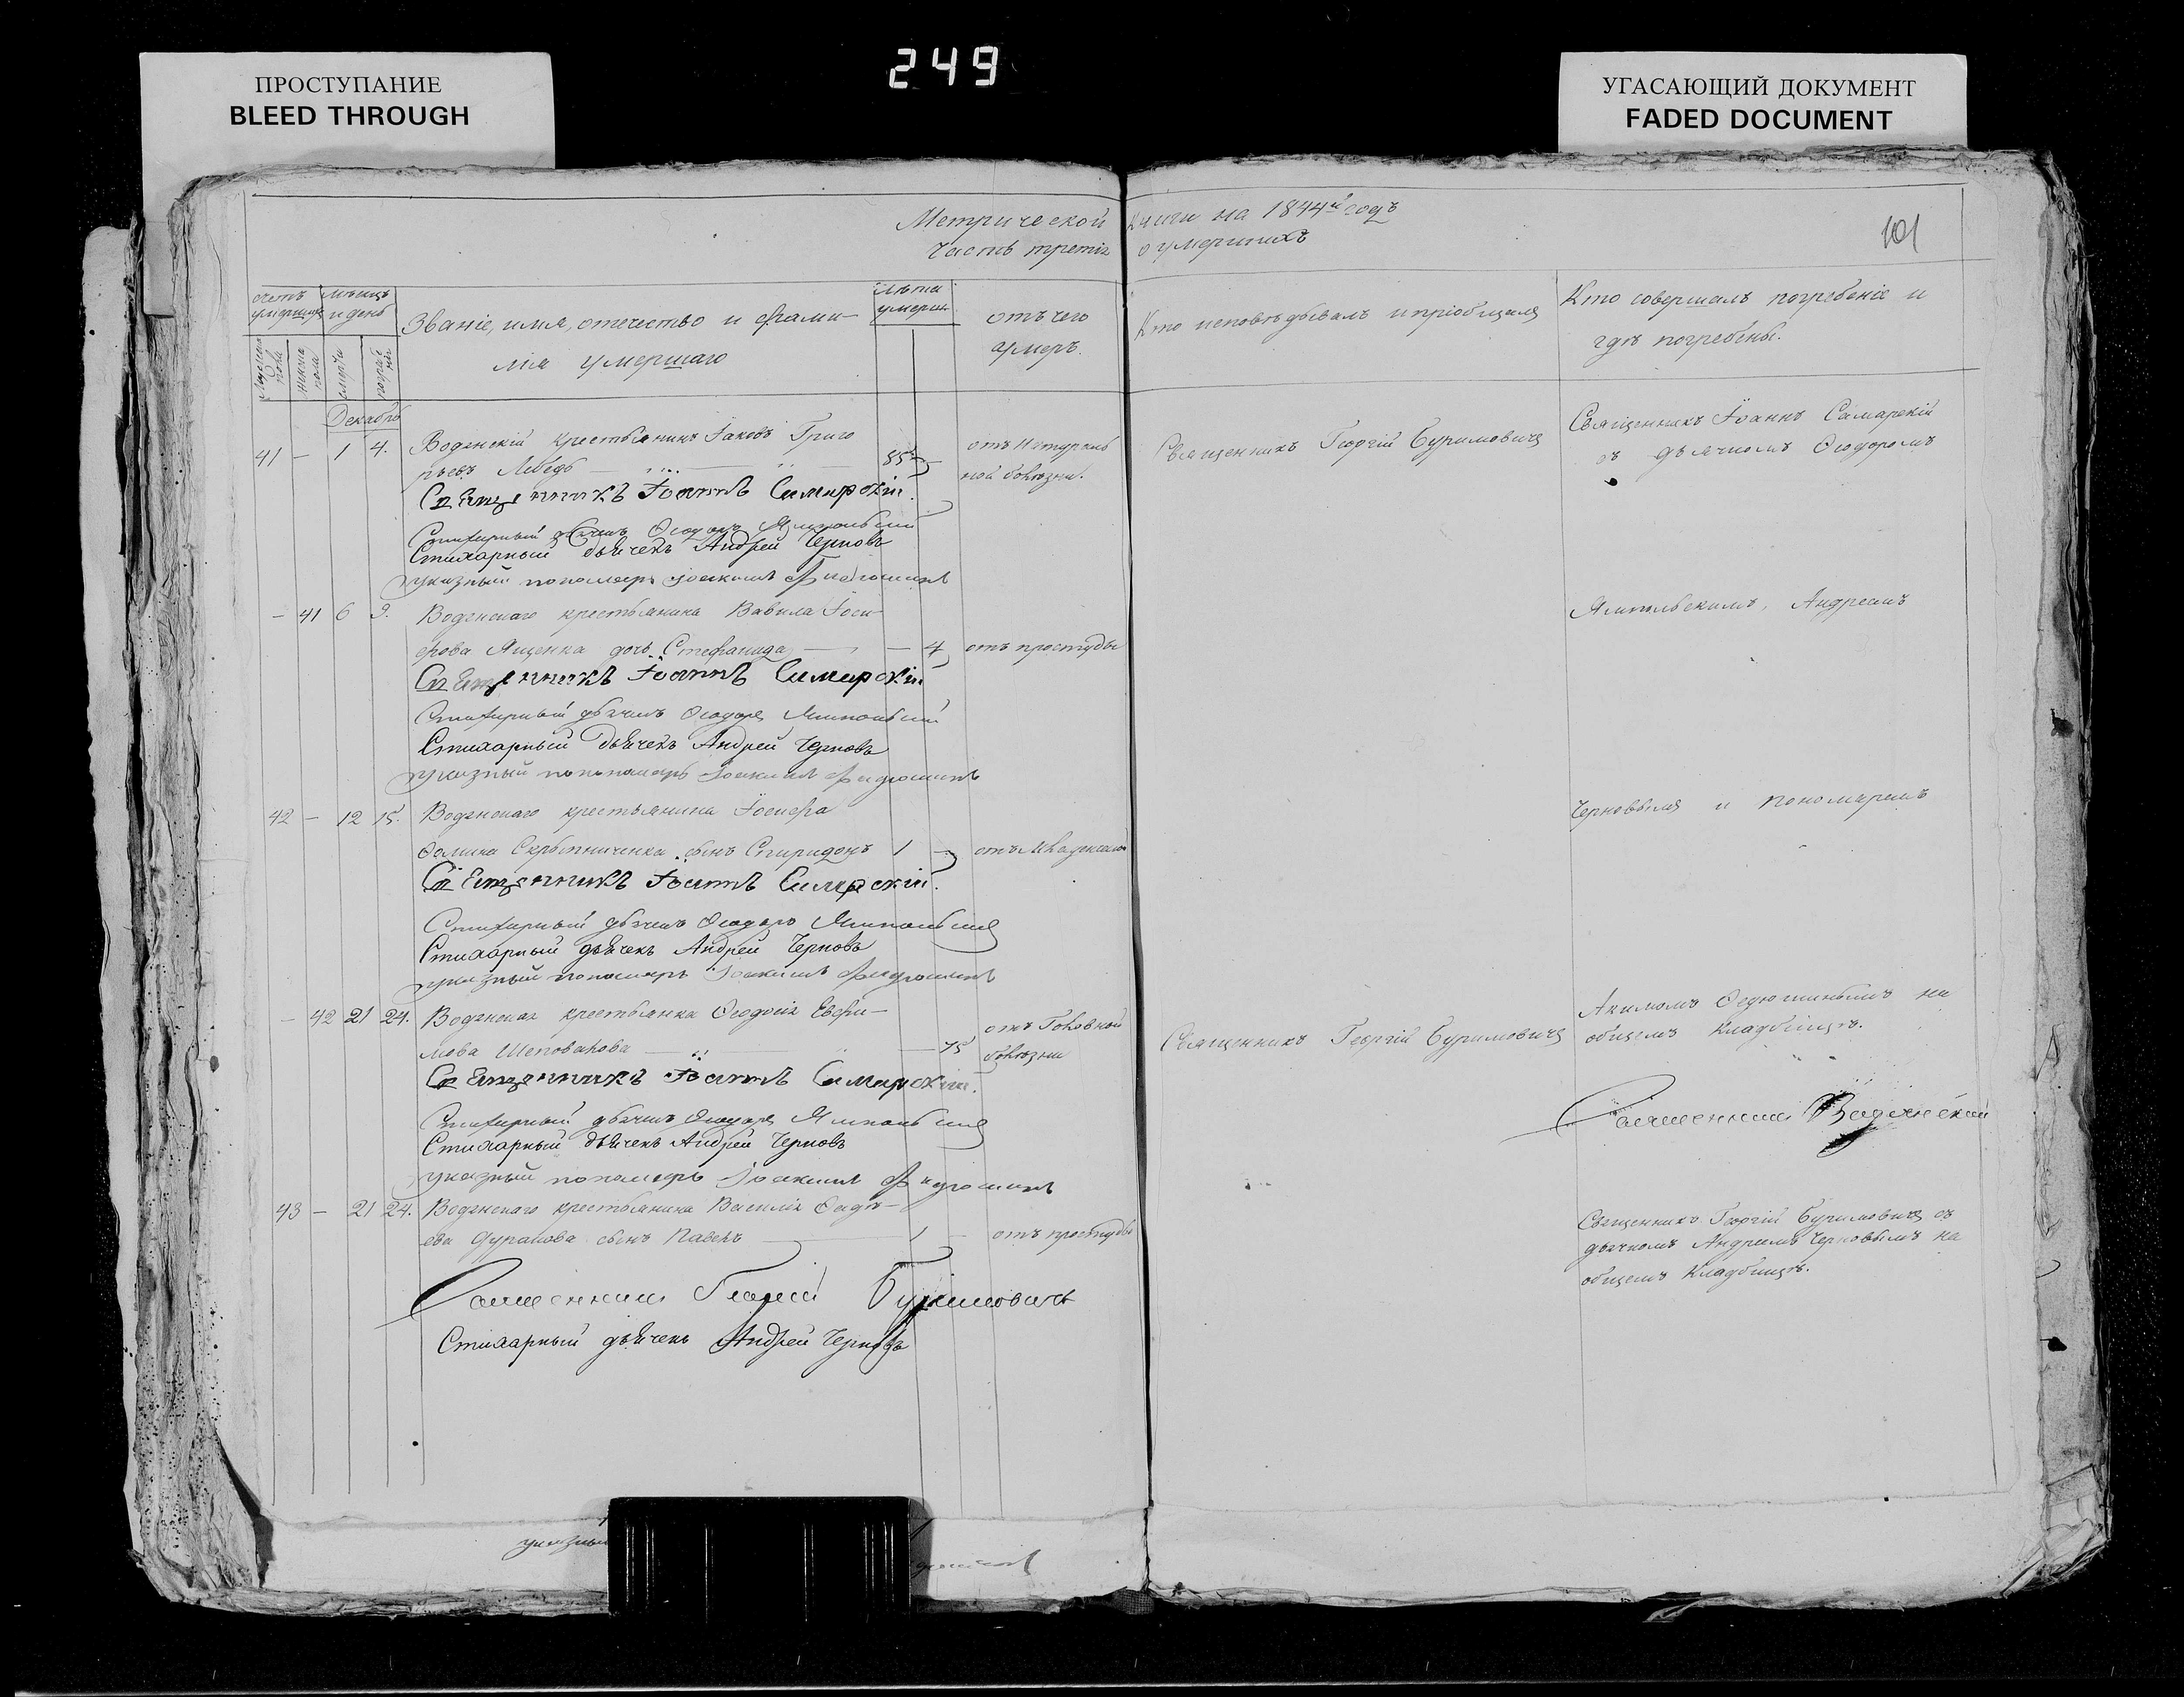 ПРОСТУПАНИЕ
BLEED THROUGH
249
УГАСАЮЩИЙ ДОКУМЕНТ
FADED DOCUMENT
Метрической Книги на 1844й годъ
Часть третія о умершихъ
101
счетъ умершихъ
мѣсяцъ и день
Званіе, имя, отечество и фами-
лія умершаго
лѣта умерш.
отъ чего
умеръ.
Кто исповѣдывалъ и пріобщалъ
Кто совершалъ погребеніе и
гдѣ погребены.
Мужеска пола
Женска пола
смерти
Декабрь
41 — 1 4. Водянскій крестьянинъ Іаковъ Григо
рьевъ Лебедь 85
отъ Натураль
ной болѣзни.
Священникъ Георгій Буримовичъ
Священникъ Іоаннъ Самарскій
съ дьячкомъ Ѳеодоромъ
Священникъ Іоаннъ Самарскій.
Стихарный дьячекъ Ѳеодоръ Ямпольскій
Стихарный дьячекъ Андрей Черновъ
указный пономарь Іоакимъ
— 41 6 9. Водянскаго крестьянина Вавила Іоси-
фова Ященка дочь Стефанида — 4
отъ простуды
Ямпольскимъ, Андреемъ
Священникъ Іоаннъ Самарскій
Стихарный дьячекъ Ѳеодоръ Ямпольскій
Стихарный дьячекъ Андрей Черновъ
указный пономарь Іоакимъ
42 — 12 15. Водянскаго крестьянина Іосифа
Ѳомина Скрыпниченка сынъ Спиридонъ 1 —
отъ Младенской
Черновымъ и пономаремъ
Священникъ Іоаннъ Самарскій.
Стихарный дьячекъ Ѳеодоръ Ямпольскій
Стихарный дьячекъ Андрей Черновъ
указный пономарь Іоакимъ
— 42 21 24. Водянская крестьянка Ѳеодосія Евфи-
мова Шеповалова — 75
отъ Головной
болѣзни
Священникъ Георгій Буримовичъ
Акимомъ Ѳедюшинымъ на
общемъ кладбищѣ.
Священникъ Іоаннъ Самарскій.
Стихарный дьячекъ Ѳеодоръ Ямпольскій
Стихарный дьячекъ Андрей Черновъ
указный пономарь Іоакимъ
Священникъ
43 — 21 24. Водянскаго крестьянина Василія Ѳадѣ-
ева сынъ Павелъ 1 —
отъ простуды
Священникъ Георгій Буримовичъ съ
дьячкомъ Андреемъ Черновымъ на
общемъ кладбищѣ.
Священникъ Георгій Буримовичъ
Стихарный дьячекъ Андрей Черновъ
указный